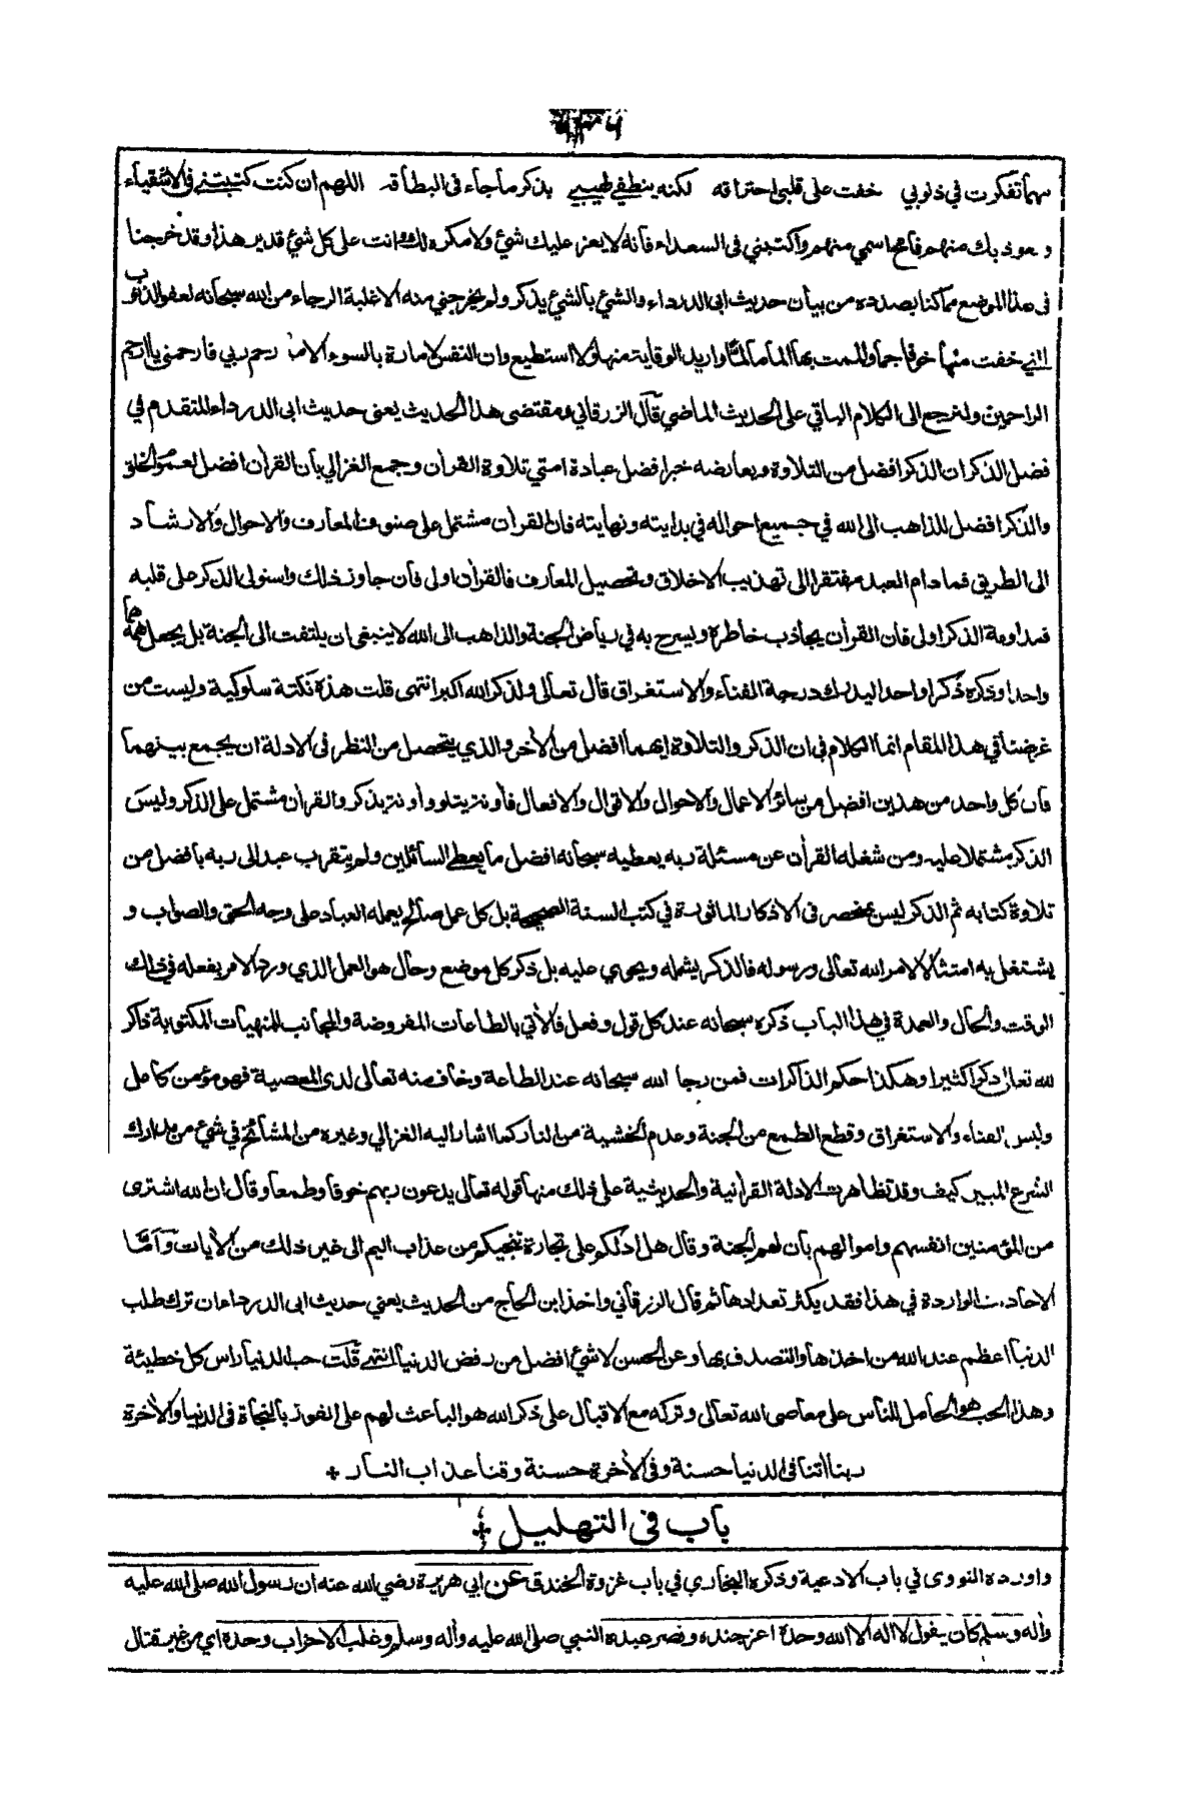 مهما تفكرت في ذنوبي خفت على قلبي احتراقه لكنه ينطفي لهيبي بذكر ما جاء في البطاقه اللهم ان كنت كتبتني في الاشقياء
وعوذ بك منهم فامح اسمي منهم واكتبني في السعداء فانه لا يعز عليك شئ ولا مكره لك وانت على كل شئ قدير هذا وقد خرجنا
في هذا الموضع مما كنا بصدده من بيان حديث ابي الدرداء والشئ بالشئ يذكر ولم يخرجني منه الا غلبة الرجاء من الله سبحانه لعفو الذنوب
التي خفت منها خوفا جما والممت بها الماما لمّا واريد الوقاية منها ولا استطيع وان النفس لامارة بالسوء الا ما رحم ربي فارحمني يا ارحم
الراحمين ولنرجع الى الكلام الباقي على الحديث الماضي قال الزرقاني ومقتضى هذا الحديث يعني حديث ابي الدرداء المتقدم في
فضل الذكر ان الذكر افضل من التلاوة ويعارضه خبر افضل عبادة امتي تلاوة القران وجمع الغزالي بان القران افضل لعموم الخلق
والذكر افضل للذاهب الى الله في جميع احواله في بدايته ونهايته فان القران مشتمل على صنوف المعارف والاحوال والارشاد
الى الطريق فما دام العبد مفتقرا الى تهذيب الاخلاق وتحصيل المعارف فالقران اولى فان جاوز ذلك واستولى الذكر على قلبه
فمداومة الذكر اولى فان القران يجاذب خاطره ويسرح به في رياض الجنة والذاهب الى الله لا ينبغي ان يلتفت الى الجنة بل يجعل همه هما
واحدا وذكره ذكرا واحدا ليدرك درجة الفناء والاستغراق قال تعالى ولذكر الله اكبر انتهى قلت هذه نكتة سلوكية وليست من
غرضنا في هذا المقام انما الكلام في ان الذكر والتلاوة ايهما افضل من الأخر والذي يتحصل من النظر في الادلة ان يجمع بينهما
فان كل واحد من هذين افضل من سائر الاعمال والاحوال والاقوال والافعال فأونة يتلو وأونة يذكر والقرأن مشتمل على الذكر وليس
الذكر مشتملا عليه ومن شغله القرأن عن مسئلة ربه يعطيه سبحانه افضل ما يعطي السائلين ولم يتقرب عبد الى ربه بافضل من
تلاوة كتابه ثم الذكر ليس بمنحصر في الاذكار الماثورة في كتب السنة الصحيحة بل كل عمل صالح يعمله العباد على وجه الحق والصواب و
يشتغل به امتثالا لامر الله تعالى ورسوله فالذكر يشمله ويحوي عليه بل ذكر كل موضع وحال هو العمل الذي ورد الامر بفعله في ذلك
الوقت والحال والعمدة في هذا الباب ذكره سبحانه عند كل قول وفعل فالأتي بالطاعات المفروضة والمجانب للمنهيات المكتوبة ذاكر
لله تعالى ذكرا كثيرا وهكذا حكم الذاكرات فمن رجا الله سبحانه عند الطاعة وخاف منه تعالى لدى المعصية فهو مؤمن كامل
وليس الفناء والاستغراق وقطع الطمع من الجنة وعدم الخشية من النار كما اشار اليه الغزالي وغيره من المشائخ في شئ من مدارك
الشرع المبين كيف وقد تظاهرت الادلة القرآنية والحديثية على ذلك منها قوله تعالى يدعون ربهم خوفا وطمعا وقال ان الله اشترى
من المؤمنين انفسهم واموالهم بان لهم الجنة وقال هل ادلكم على تجارة تنجيكم من عذاب اليم الى غير ذلك من الأيات وأمّا
الاحاديث الواردة في هذا فقد يكثر تعدادها ثم قال الزرقاني واخذ ابن الحاج من الحديث يعني حديث ابي الدرداء ان ترك طلب
الدنيا اعظم عند الله من اخذها والتصدف بها وعن الحسن لا شئ افضل من رفض الدنيا انتهى قلت حب الدنيا راس كل خطيئة
وهذا الحب هو الحامل للناس على معاصي الله تعالى وتركه مع الاقبال على ذكر الله هو الباعث لهم على الفوز بالنجاة في الدنيا والأخرة
ربنا اتنا في الدنيا حسنة وفي الأخرة حسنة وقنا عذاب النار +
باب في التهليل
واورده النووي في باب الادعية وذكره البخاري في باب غزوة الخندق عن ابي هريرة رضي الله عنه ان رسول الله صلى الله عليه
وأله وسلم كان يقول لا اله الا الله وحدة اعز جنده ونصر عبده النبي صلى الله عليه وأله وسلم وغلب الاحزاب وحدة اي من غير قتال